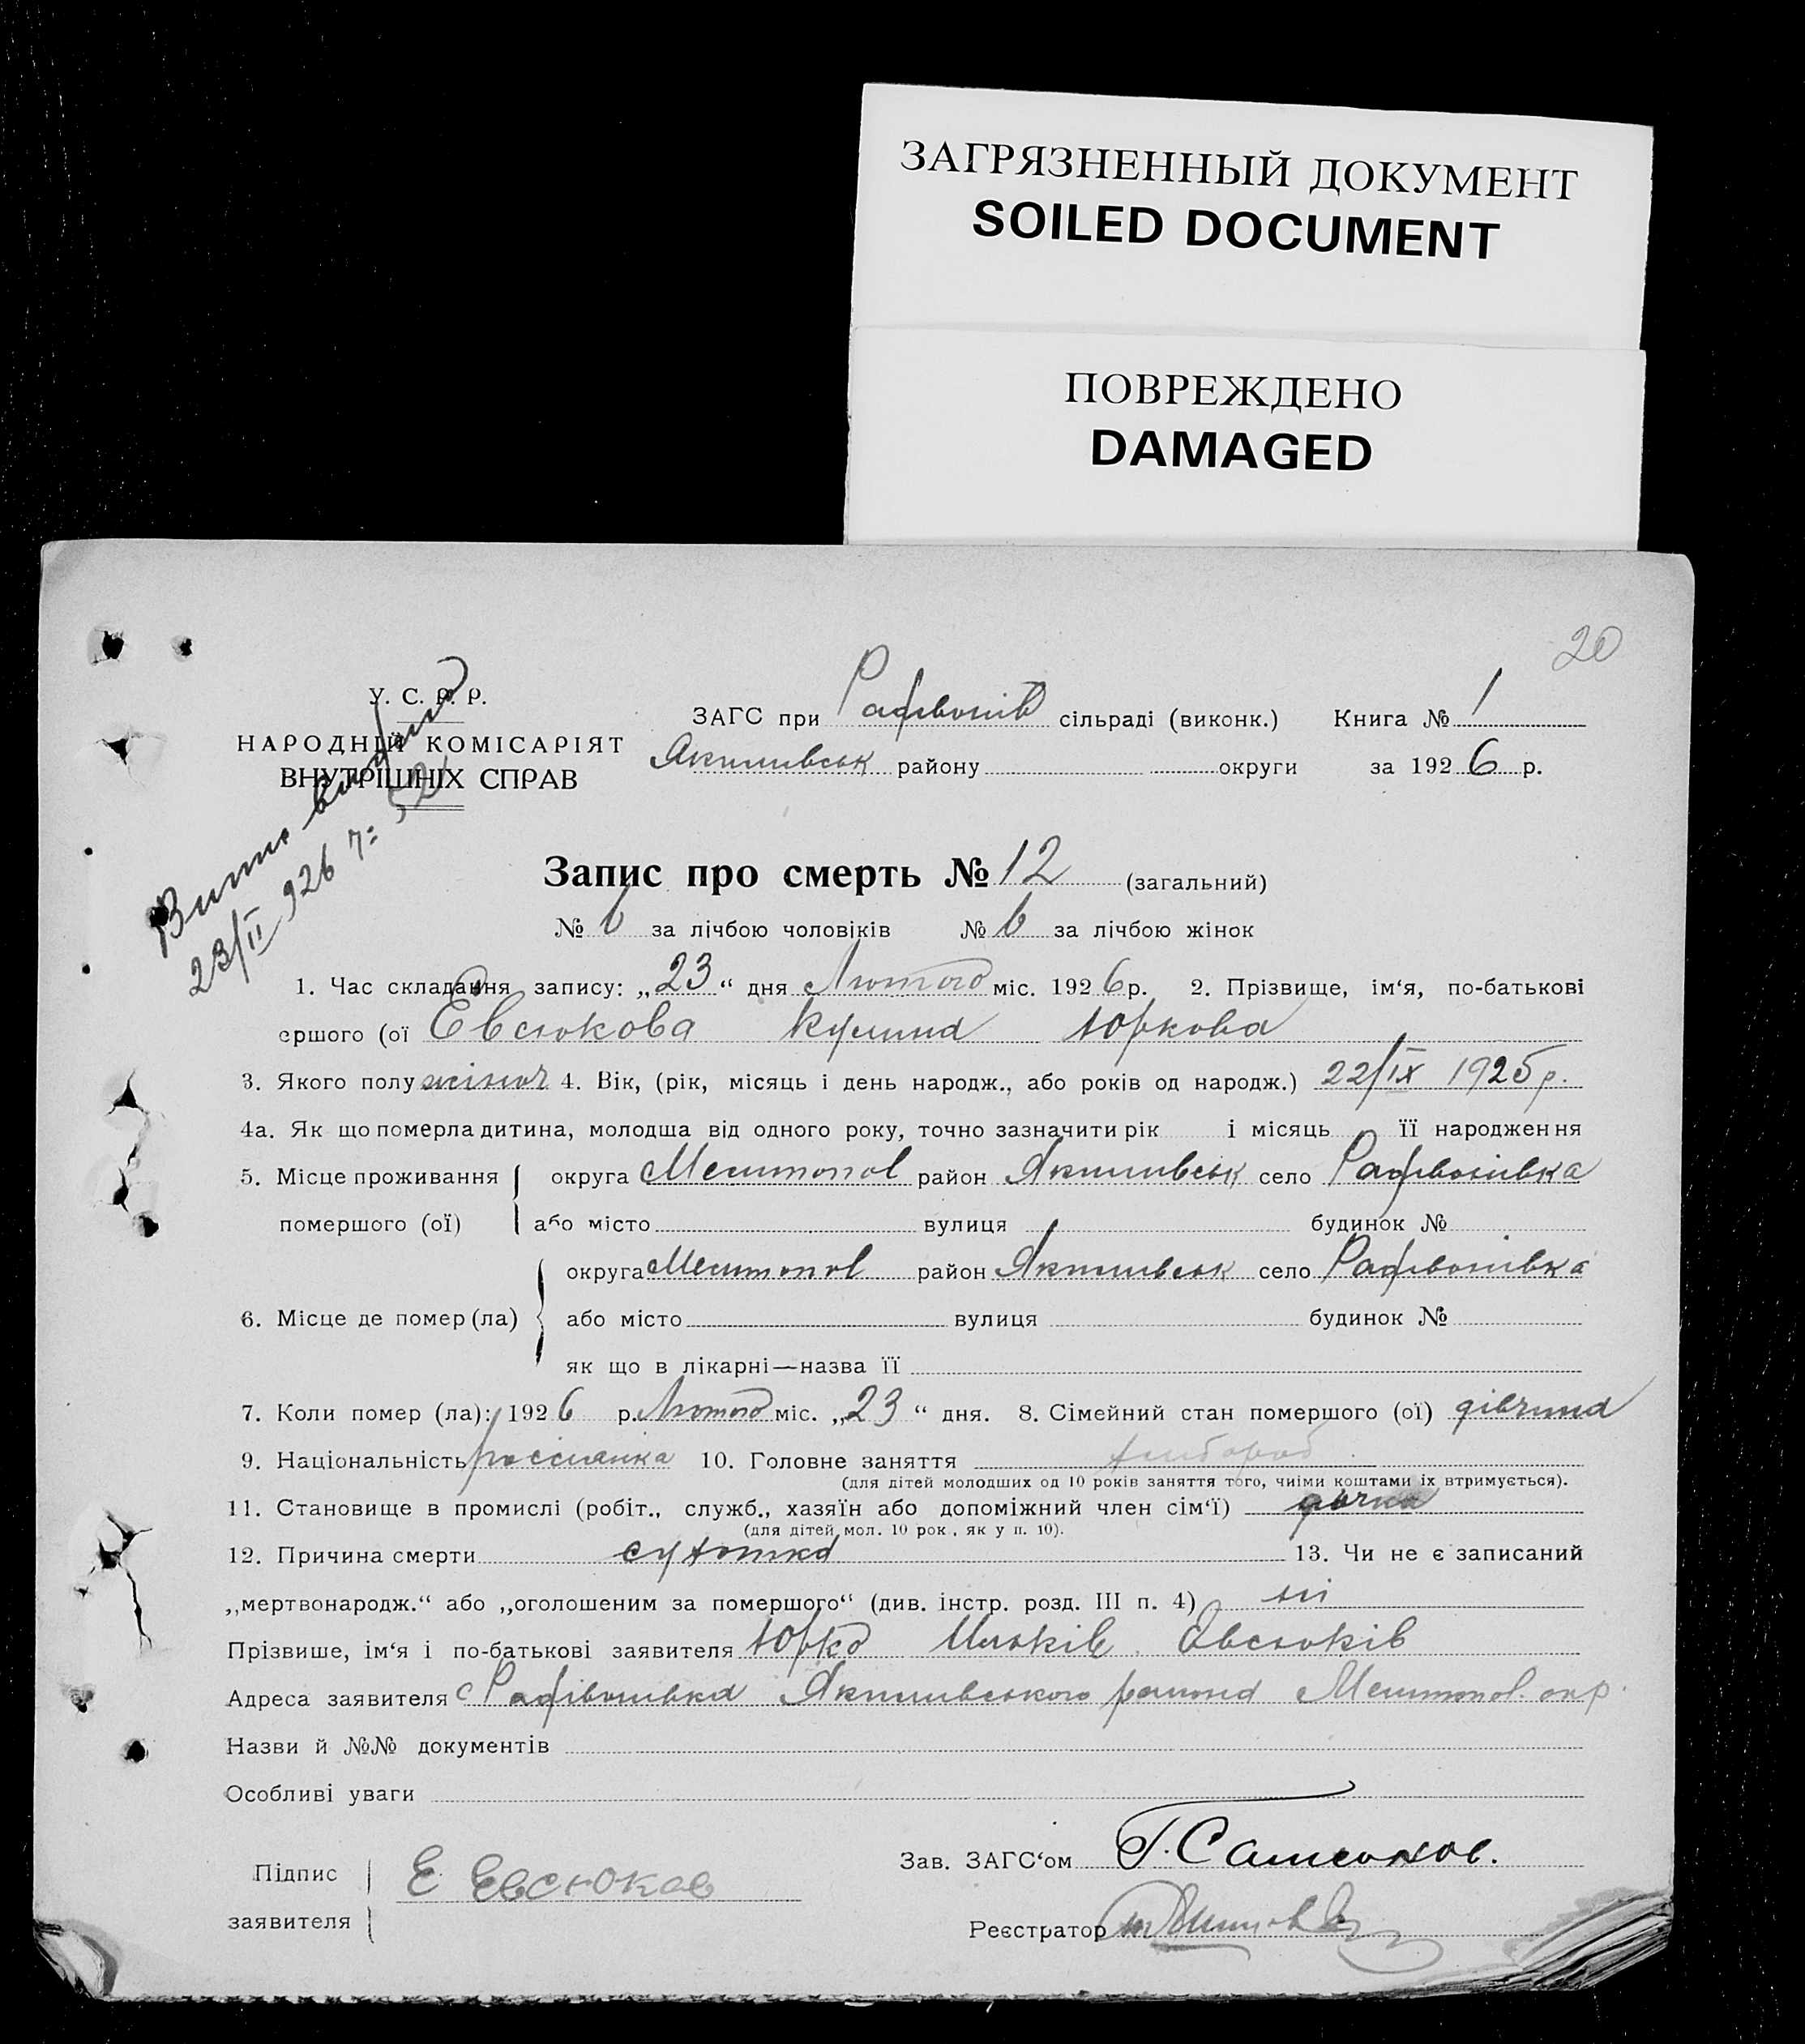 ЗАГРЯЗНЕННЫЙ ДОКУМЕНТ
SOILED DOCUMENT
ПОВРЕЖДЕНО
DAMAGED
20
У. С. Р. Р.
НАРОДНІЙ КОМІСАРІЯТ
ВНУТРІШНІХ СПРАВ
23/II 926 52
ЗАГС при Рафівсив сільраді (виконк.) Книга № 1
Якимивськ району округи за 1926 р.
Запис про смерть № 12 (загальний)
№ 6 за лічбою чоловіків № 6 за лічбою жінок
1. Час складання запису: „23“ дня Лютого міс. 1926 р. 2. Прізвище, ім‘я, по-батькові
ершого (ої Евсюкова Кулина Юркова
3. Якого полу жіноч 4. Вік, (рік, місяць і день народж., або років од народж.) 22/IX 1925 р.
4а. Як що померла дитина, молодша від одного року, точно зазначити рік і місяць її народження
5. Місце проживання округа Мелитопол район Якимивськ село Рафивонивка
помершого (ої) або місто вулиця будинок №
округа Мелитопол район Якимивськ село Рафивонивка
6. Місце де помер (ла) або місто вулиця будинок №
як що в лікарні—назва її
7. Коли помер (ла): 1926 р. Лютого міс. „23“ дня. 8. Сімейний стан помершого (ої) дівчина
9. Національність россиянка 10. Головне заняття хлібороб
(для дітей молодших од 10 років заняття того, чиїми коштами їх втримується).
11. Становище в промислі (робіт., служб., хазяїн або допоміжний член сім‘ї) дочка
(для дітей мол. 10 рок., як у п. 10).
12. Причина смерти сухотка 13. Чи не є записаний
„мертвонародж.“ або „оголошеним за помершого“ (див. інстр. розд. III п. 4) ні
Прізвише, ім‘я і по-батькові заявителя Юрко Ильків Овсюків
Адреса заявителя с Рафівонивка Якимивського района Мелитопол. окр.
Назви й №№ документів
Особливі уваги
Підпис заявителя Е Евсюков
Зав. ЗАГС‘ом Г. Самсонов.
Реєстратор